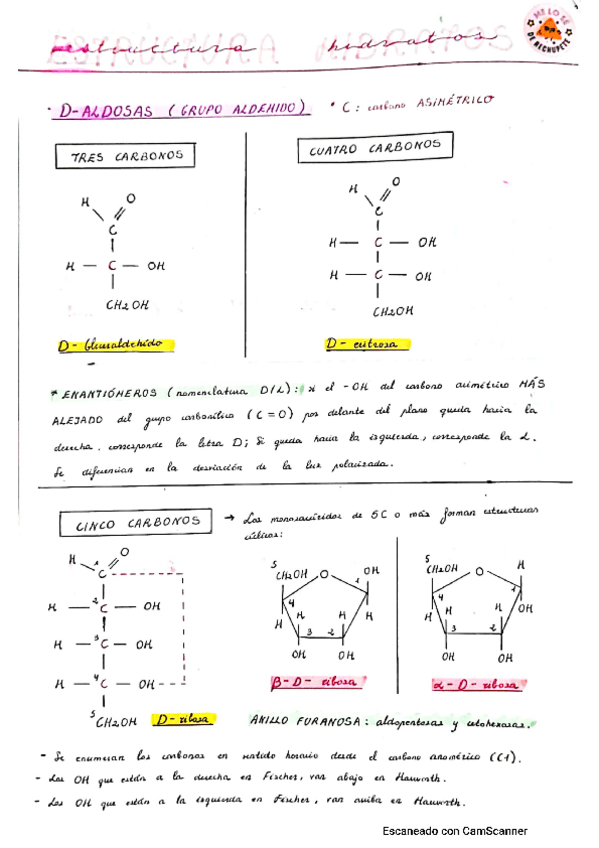 estructura hidratos
ESTRUCTURA HIDRATOS
ME LO SÉ
DE RECHUPETE
· D-ALDOSAS (GRUPO ALDEHIDO) * C: carbono ASIMÉTRICO
TRES CARBONOS
CUATRO CARBONOS
H O
C
H — C — OH
CH2OH
D- Gliceraldehido
H O
C
H — C — OH
H — C — OH
CH2OH
D- eritrosa
* ENANTIÓMEROS (nomenclatura D/L): si el -OH del carbono asimétrico MÁS
ALEJADO del grupo carbonílico (C=O) por delante del plano queda hacia la
derecha, corresponde la letra D; Si queda hacia la izquierda, corresponde la L.
Se diferencian en la desviación de la luz polarizada.
CINCO CARBONOS → Los monosacáridos de 5C o más forman estructuras
cíclicas:
H 1 O
C
H — 2 C — OH
H — 3 C — OH
H — 4 C — OH
5 CH2OH D- ribosa
5
CH2OH O OH
4 1
H H H H
3 2
OH OH
β-D- ribosa
5
CH2OH O H
4 1
H H H OH
3 2
OH OH
α-D- ribosa
ANILLO FURANOSA: aldopentosas y cetohexosas.
- Se enumeran los carbonos en sentido horario desde el carbono anomérico (C1).
- Los OH que están a la derecha en Fischer, van abajo en Haworth.
- Los OH que están a la izquierda en Fischer, van arriba en Haworth.
Escaneado con CamScanner